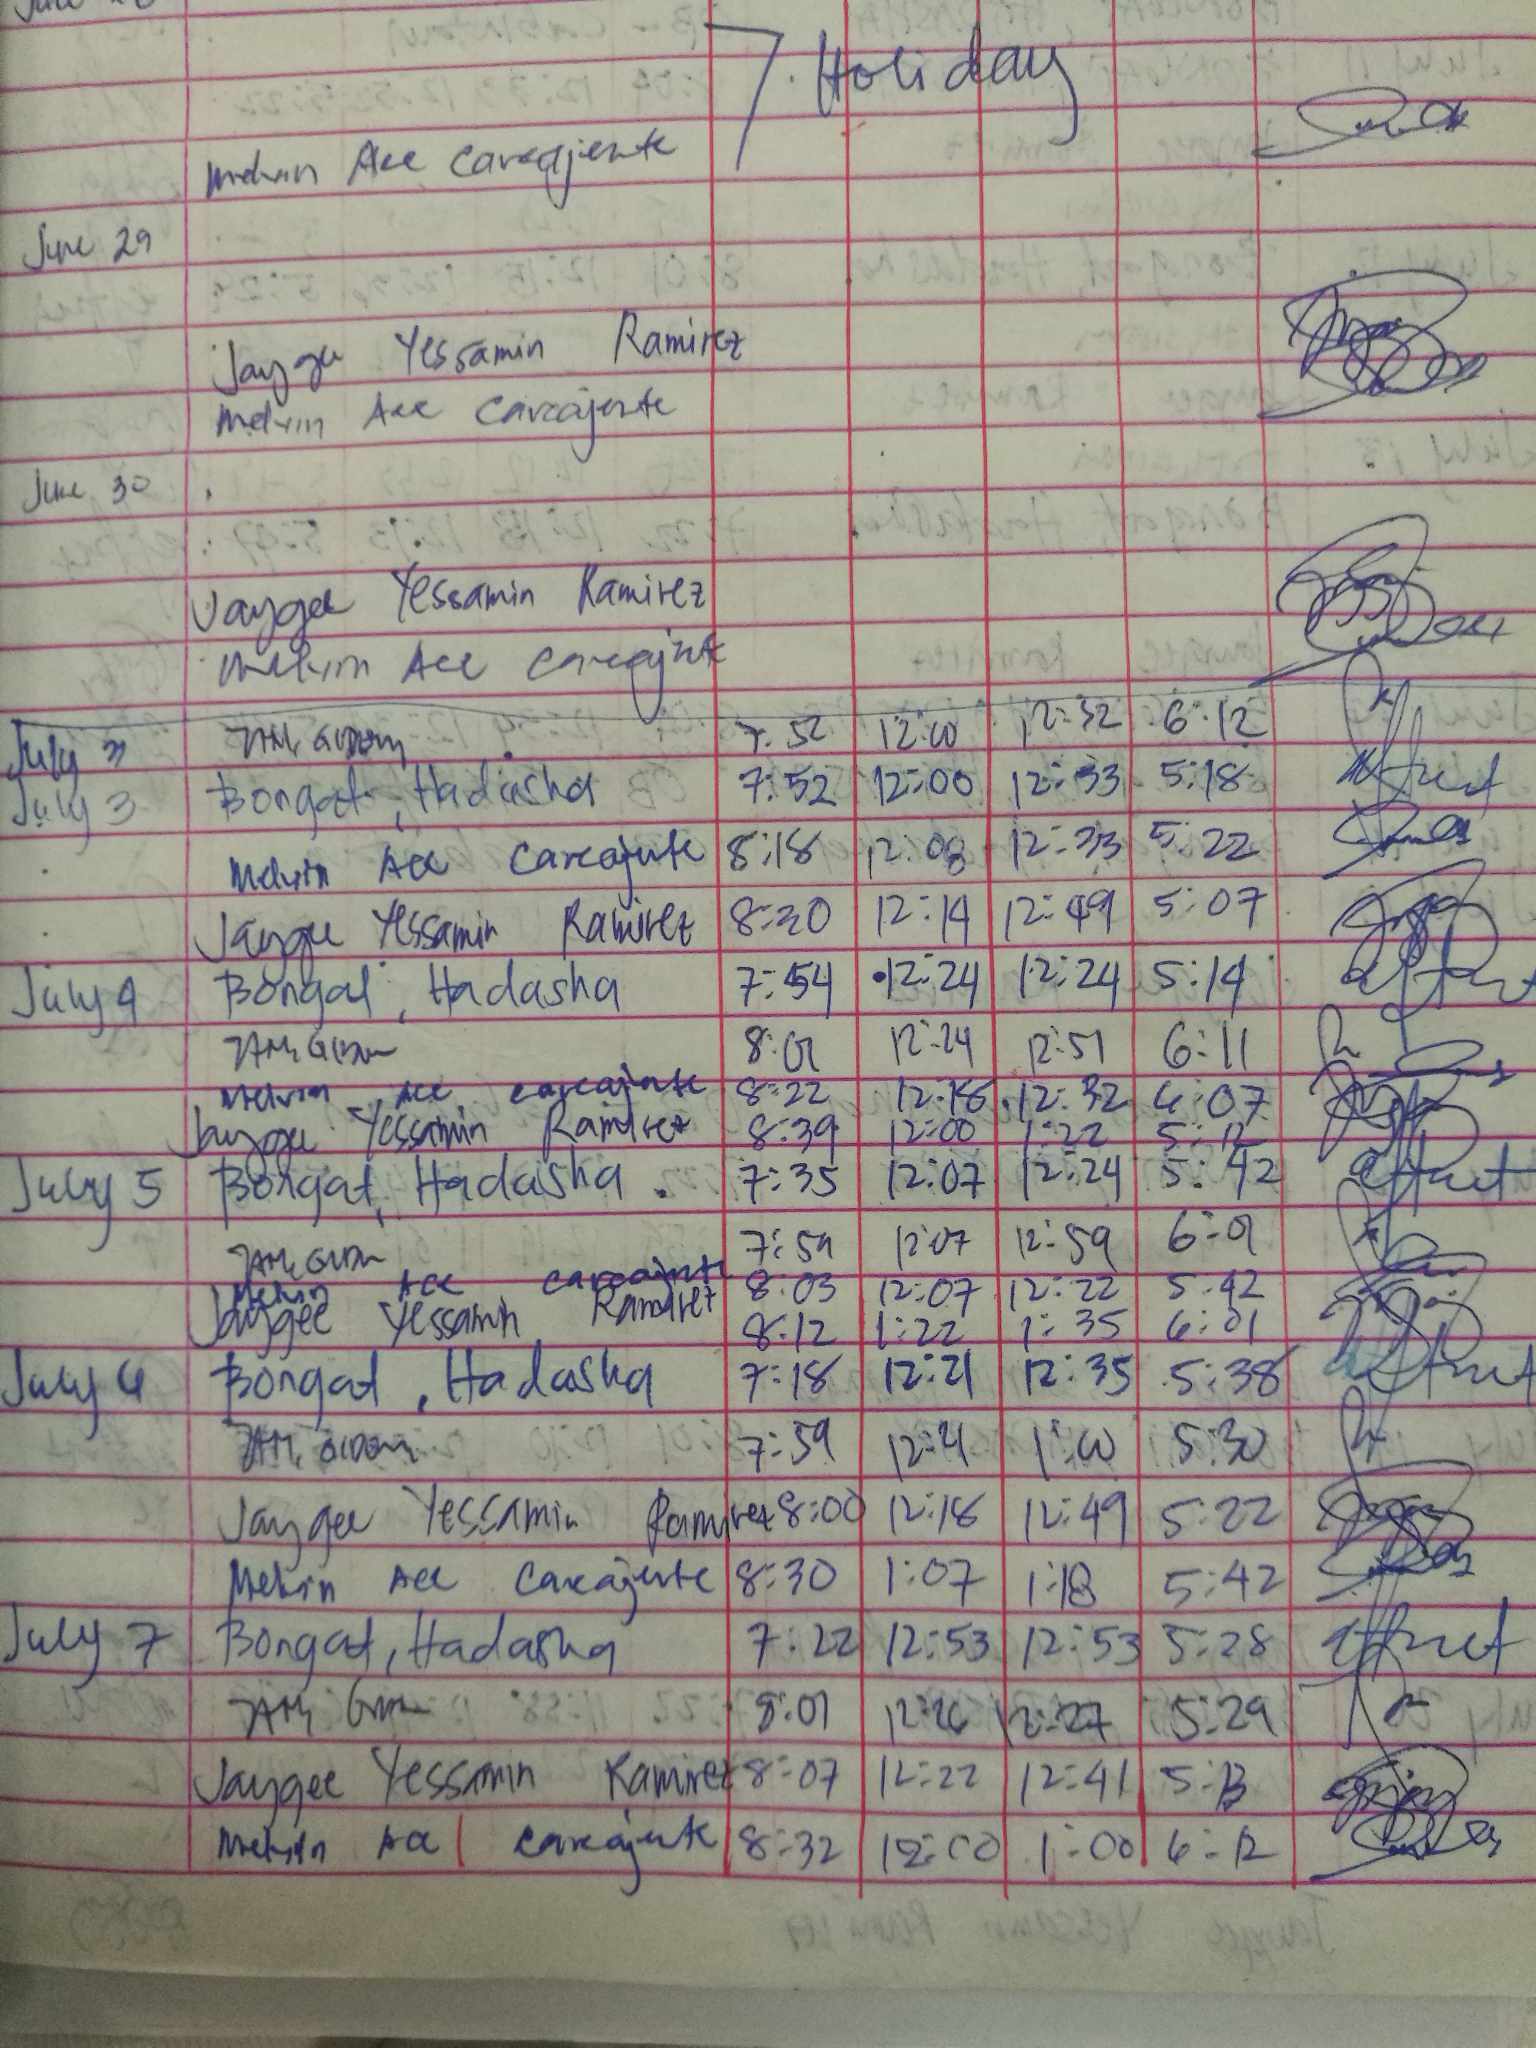 7. Holiday
Melvin Ace Carcajente
June 29
Jaygee Yessamin Ramirez
Melvin Ace Carcajente
June 30
Jaygee Yessamin Ramirez
Melvin Ace Carcajente
July 3 7:52 12:00 12:32 6:12
July 3 Bongat, Hadasha 7:52 12:00 12:33 5:18
Melvin Ace Carcajente 8:18 12:08 12:33 5:22
Jaygee Yessamin Ramirez 8:30 12:14 12:49 5:07
July 4 Bongat, Hadasha 7:54 12:24 12:24 5:14
8:01 12:24 12:51 6:11
Melvin Ace Carcajente 8:22 12:18 12:32 6:07
Jaygee Yessamin Ramirez 8:39 12:00 1:22 5:12
July 5 Bongat, Hadasha 7:35 12:07 12:24 5:42
7:59 12:07 12:59 6:01
Melvin Ace Carcajente 8:03 12:07 12:22 5:42
Jaygee Yessamin Ramirez 8:12 1:22 1:35 6:01
July 6 Bongat, Hadasha 7:18 12:21 12:35 5:38
7:59 12:21 1:00 5:30
Jaygee Yessamin Ramirez 8:00 12:18 12:49 5:22
Melvin Ace Carcajente 8:30 1:07 1:18 5:42
July 7 Bongat, Hadasha 7:22 12:53 12:53 5:28
8:01 12:26 12:27 5:29
Jaygee Yessamin Ramirez 8:07 12:22 12:41 5:13
Melvin Ace Carcajente 8:32 12:00 1:00 6:12